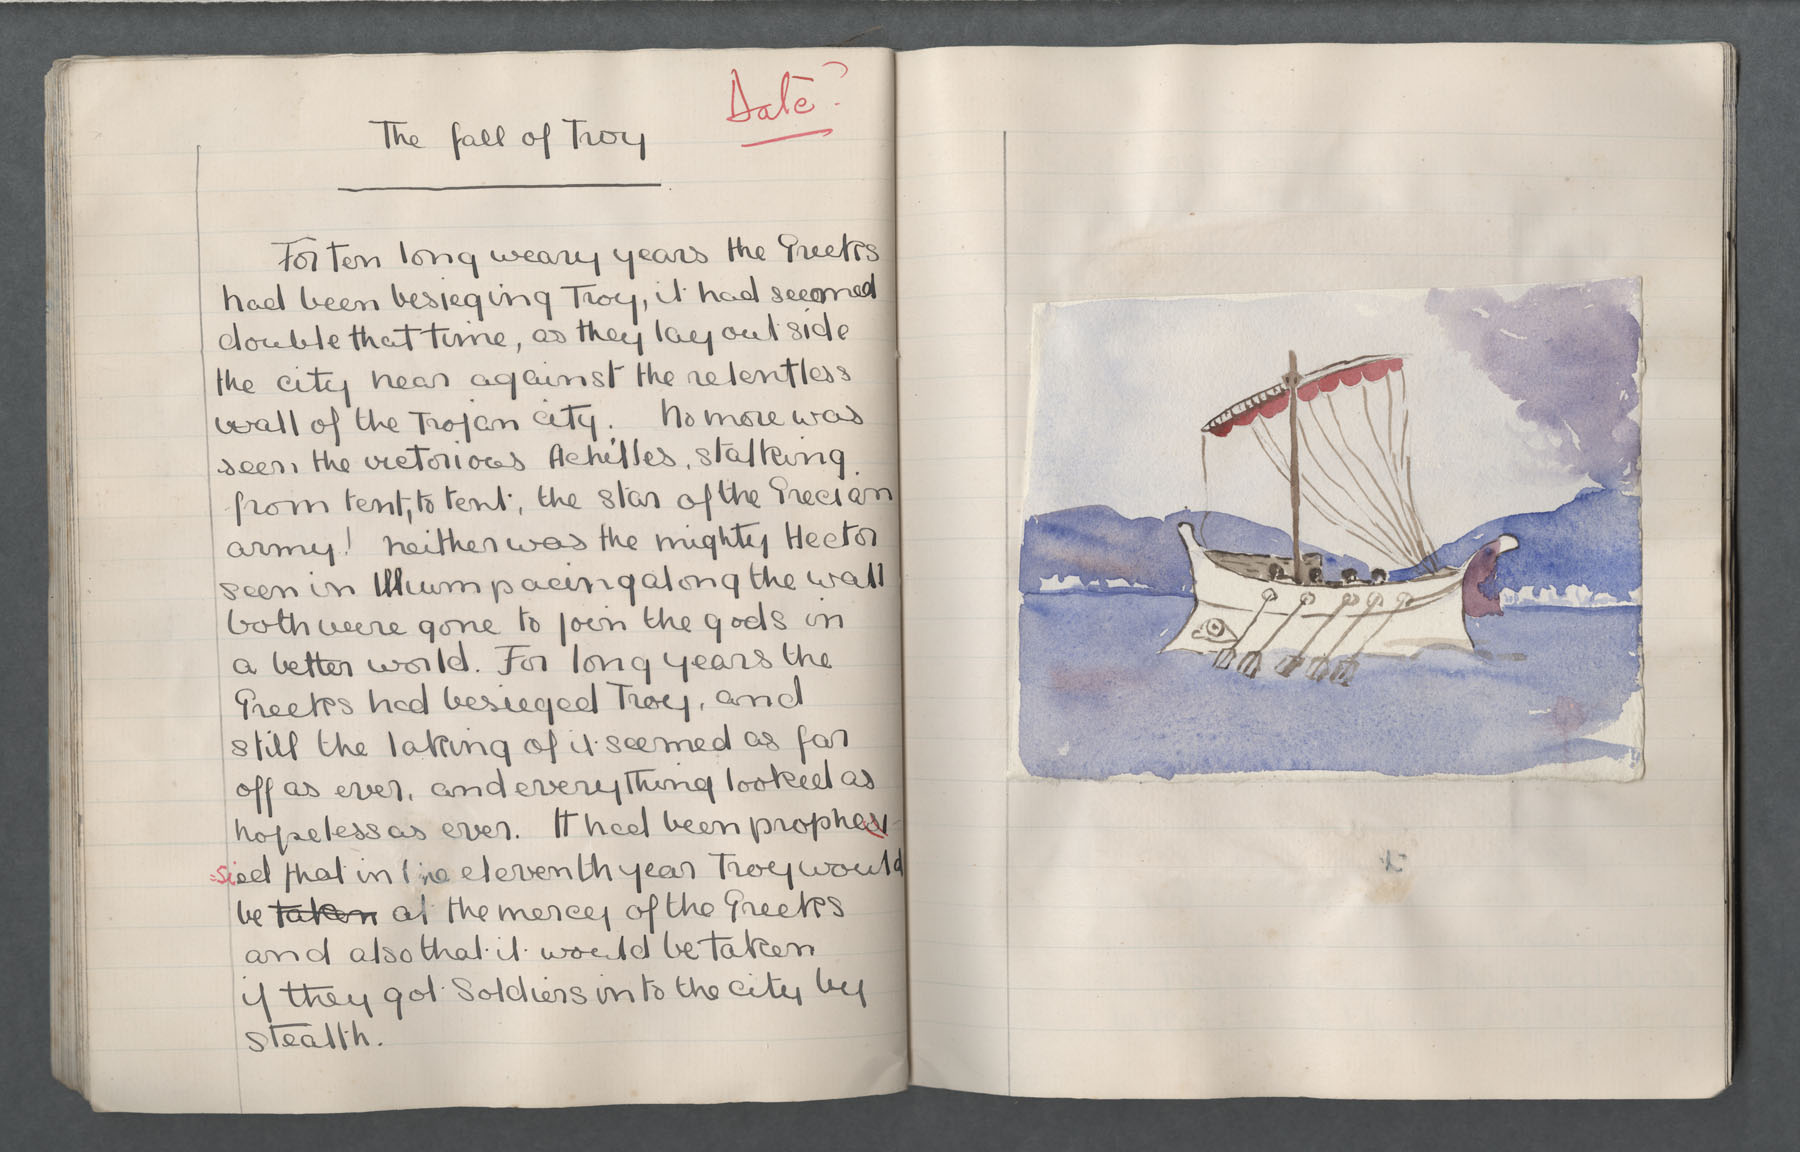 Date?
The fall of Troy
For ten long weary years the Greeks
had been besieging Troy, it had seemed
double that time, as they lay out side
the city near against the relentless
wall of the Trojan city. No more was
seen the victorious Achilles, stalking
from tent, to tent, the star of the Grecian
army! neither was the mighty Hector
seen in Illium pacing along the wall
both were gone to join the gods in
a better world. For long years the
Greeks had besieged Troy, and
still the taking of it seemed as far
off as ever, and everything looked as
hopeless as ever. It had been prophes-
-sied that in the eleventh year Troy would
be taken at the mercy of the Greeks
and also that it would be taken
if they got soldiers into the city by
stealth.